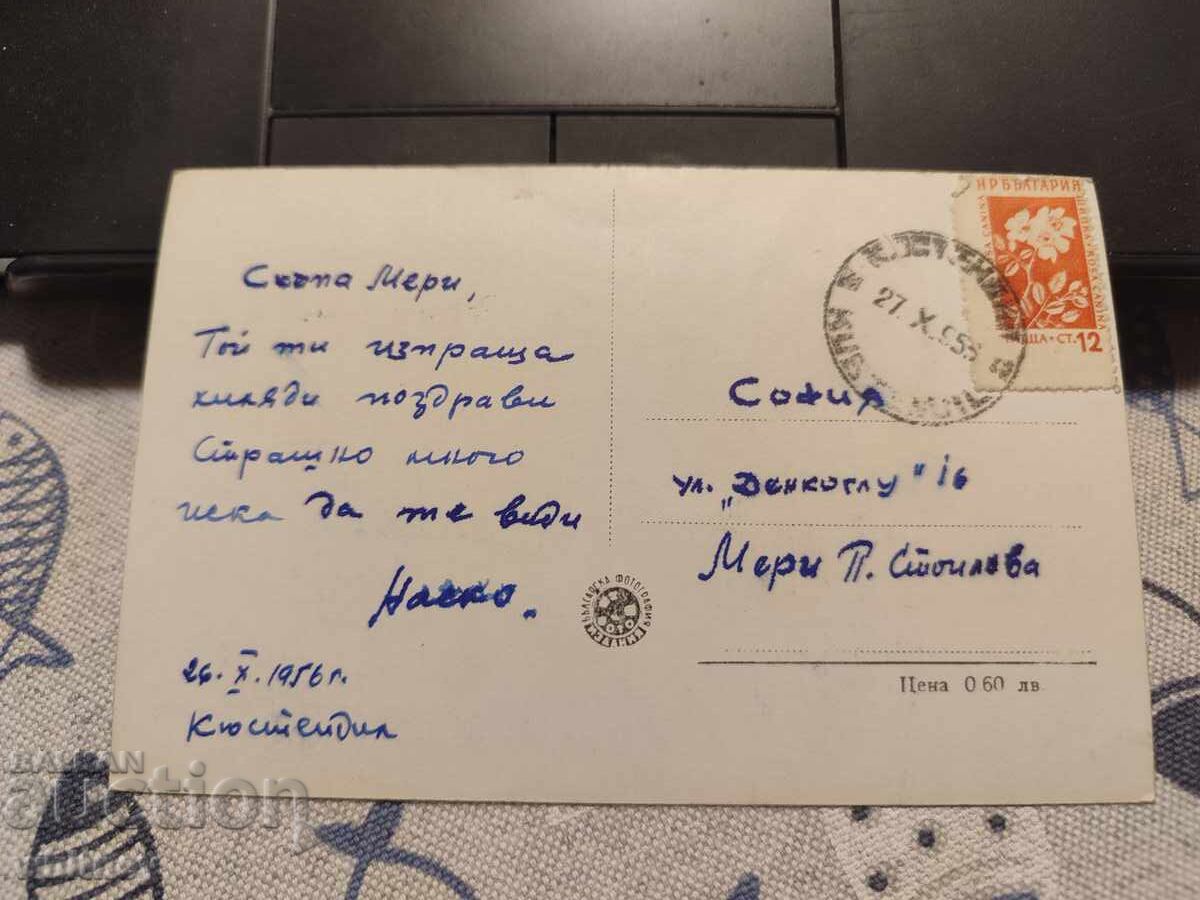 Скъпа Мери,
Той ти изпраща
хиляди поздрави
Страшно много
иска да те види
Наско.
26. X. 1956 г.
Кюстендил
БЪЛГАРСКА ФОТОГРАФИЯ
НР БЪЛГАРИЯ
ПОЩА • СТ. 12
27. X. 956
София
ул. „Денкоглу" 16
Мери П. Стоилова
Цена 0 60 лв
BALKAN
auction